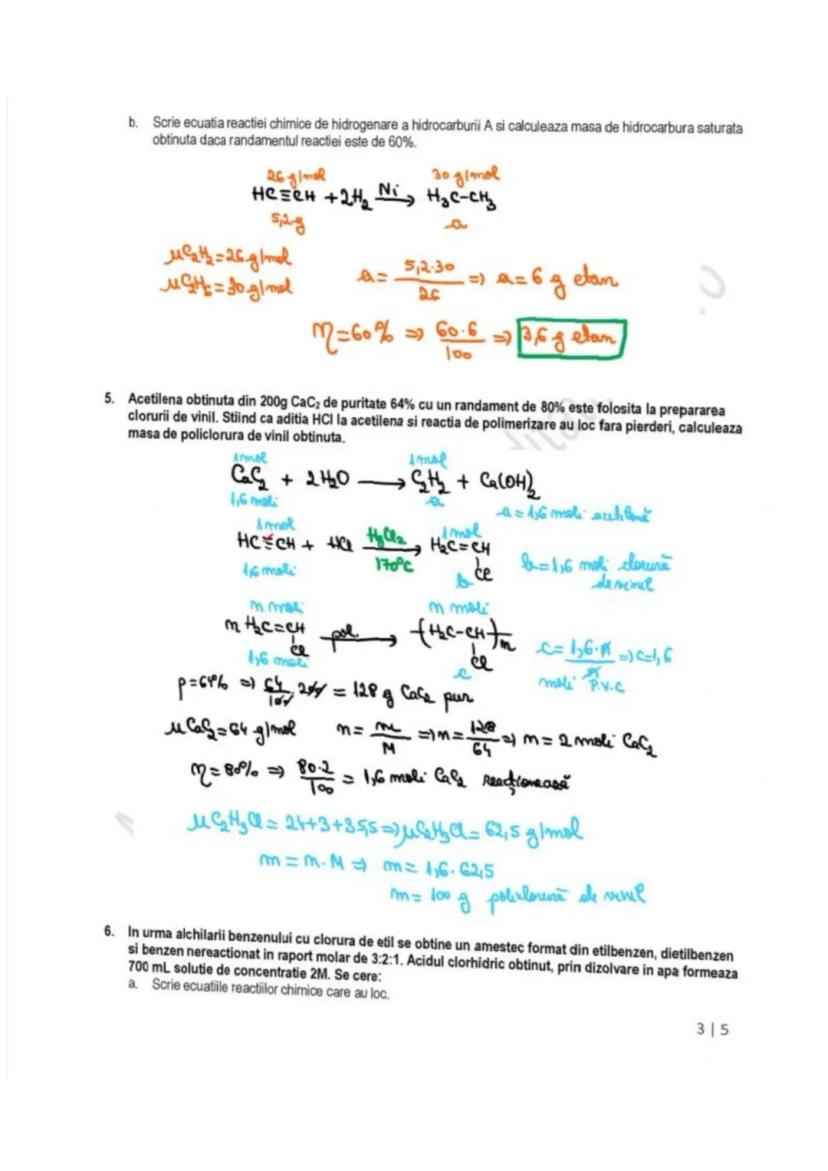 b. Scrie ecuatia reactiei chimice de hidrogenare a hidrocarburii A si calculeaza masa de hidrocarbura saturata
obtinuta daca randamentul reactiei este de 60%.
26 g/mol 30 g/mol
HC≡CH + 2H₂ —Ni→ H₃C-CH₃
5,2g a
μC₂H₂ = 26 g/mol
μC₂H₆ = 30 g/mol
a = 5,2·30/26 ⇒ a = 6 g etan
η = 60% ⇒ 60·6/100 ⇒ 3,6 g etan
5. Acetilena obtinuta din 200g CaC₂ de puritate 64% cu un randament de 80% este folosita la prepararea
clorurii de vinil. Stiind ca aditia HCl la acetilena si reactia de polimerizare au loc fara pierderi, calculeaza
masa de policlorura de vinil obtinuta.
1mol 1mol
CaC₂ + 2H₂O → C₂H₂ + Ca(OH)₂
1,6 moli a
a = 1,6 moli acetilenă
1mol 1mol
HC≡CH + HCl —HgCl₂ 170°C→ H₂C=CH
Cl
1,6 moli b
b = 1,6 moli clorură
de vinil
n moli n moli
n H₂C=CH —pol→ -(H₂C-CH)-n
Cl Cl
1,6 moli c
c = 1,6·n/n ⇒ c = 1,6
moli P.V.C
p = 64% ⇒ 64/100 · 200 = 128 g CaC₂ pur
μCaC₂ = 64 g/mol n = m/M ⇒ n = 128/64 ⇒ n = 2 moli CaC₂
η = 80% ⇒ 80·2/100 = 1,6 moli CaC₂ reacționează
μC₂H₃Cl = 24+3+35,5 ⇒ μC₂H₃Cl = 62,5 g/mol
m = n·M ⇒ m = 1,6·62,5
m = 100 g policlorură de vinil
6. In urma alchilarii benzenului cu clorura de etil se obtine un amestec format din etilbenzen, dietilbenzen
si benzen nereactionat in raport molar de 3:2:1. Acidul clorhidric obtinut, prin dizolvare in apa formeaza
700 mL solutie de concentratie 2M. Se cere:
a. Scrie ecuatiile reactiilor chimice care au loc.
3 | 5